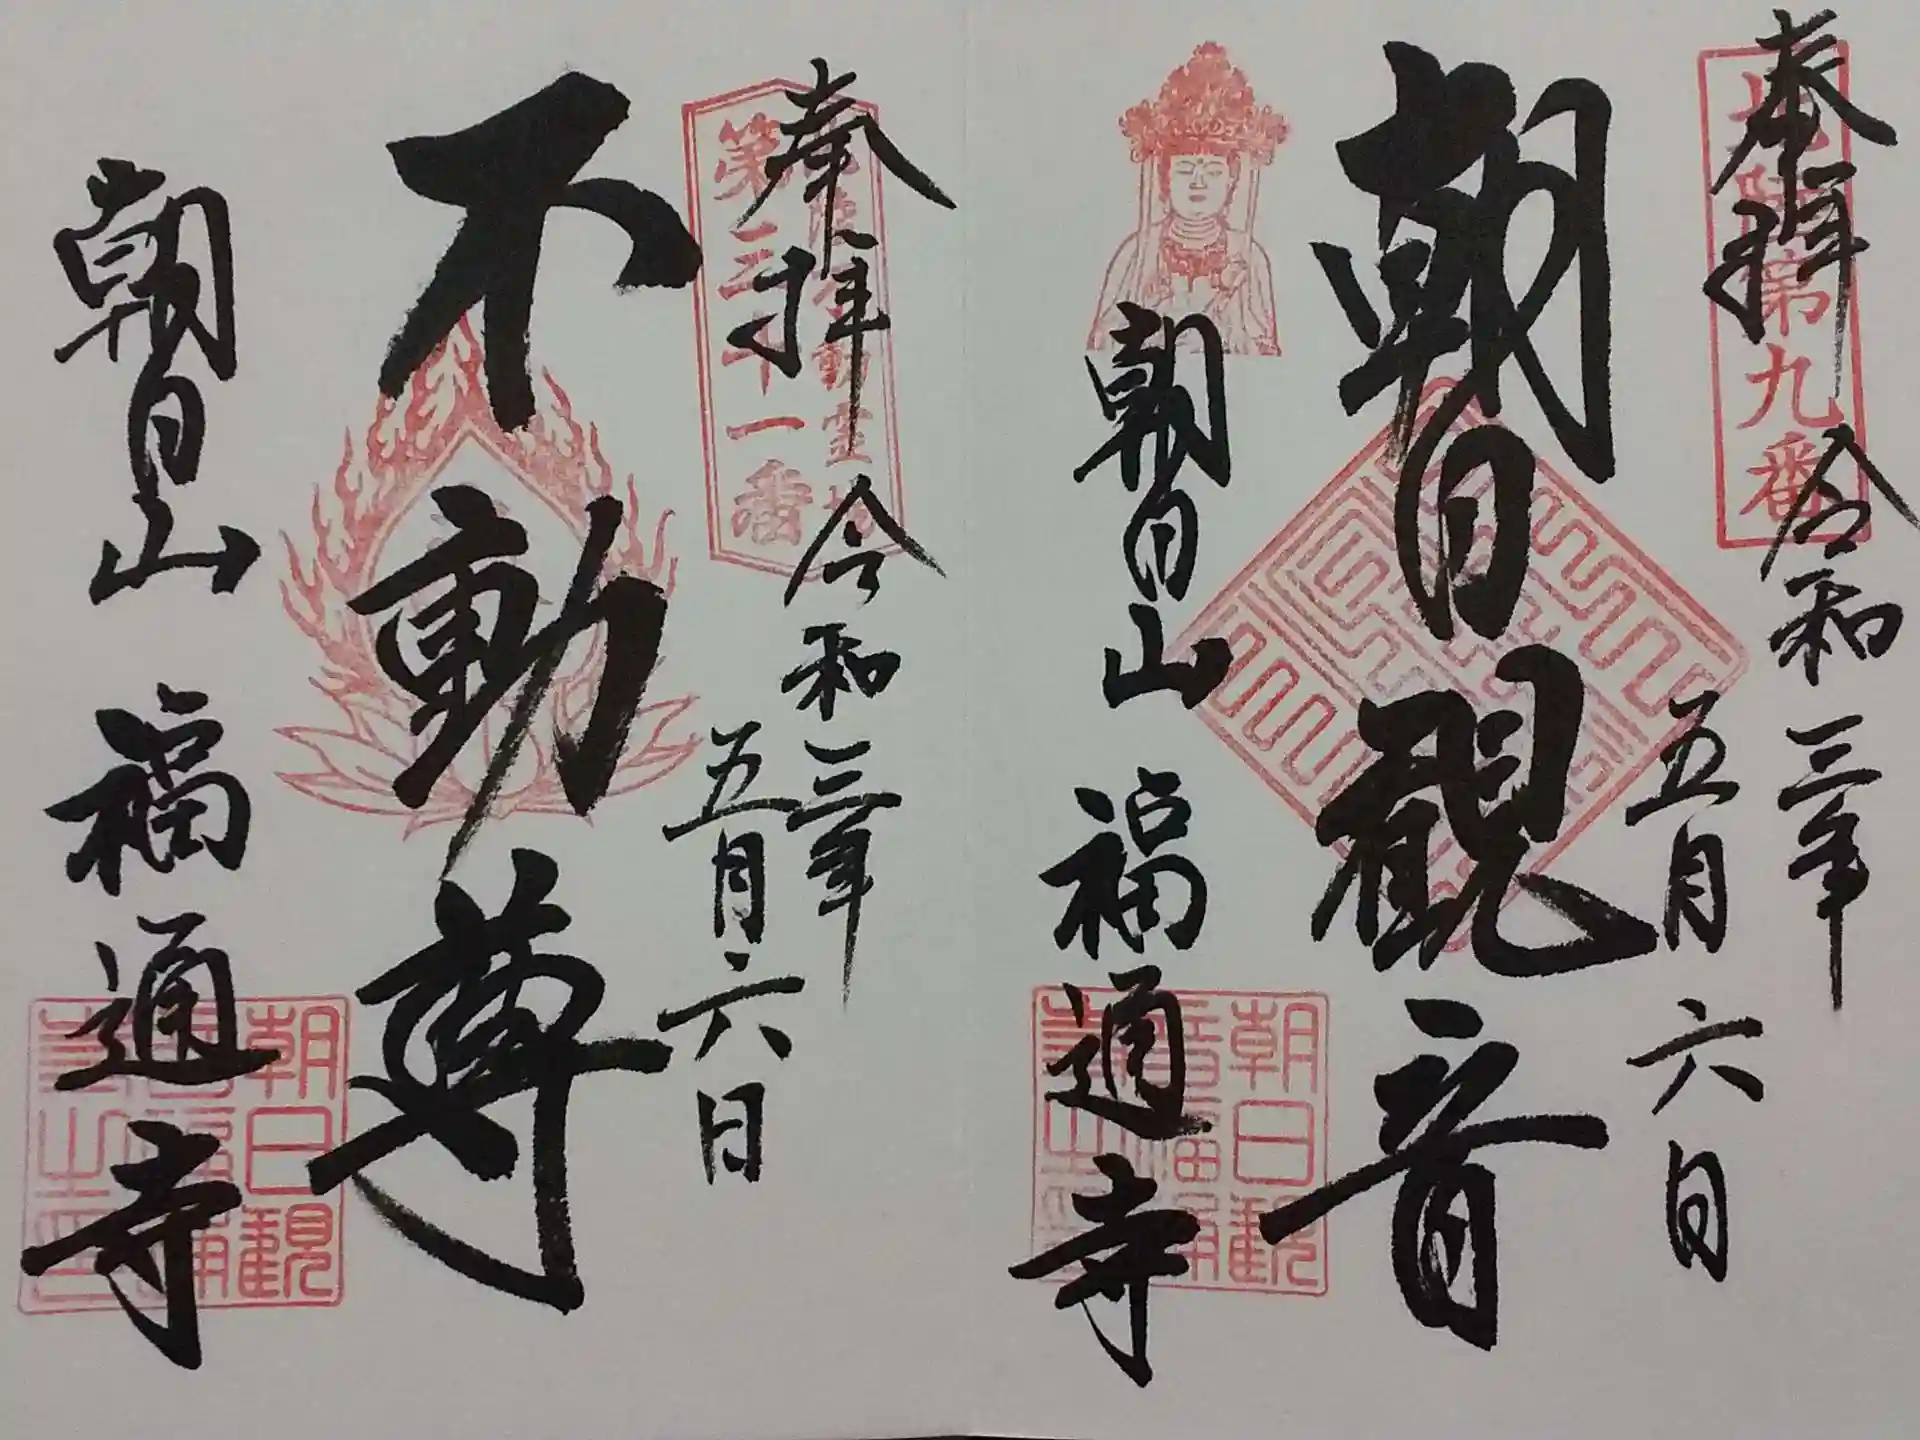 奉拝
令和三年
五月六日
朝日観音
朝日山 福通寺
北陸第九番
朝日観
奉拝
令和三年
五月六日
不動尊
朝日山 福通寺
第三十一番
朝日観